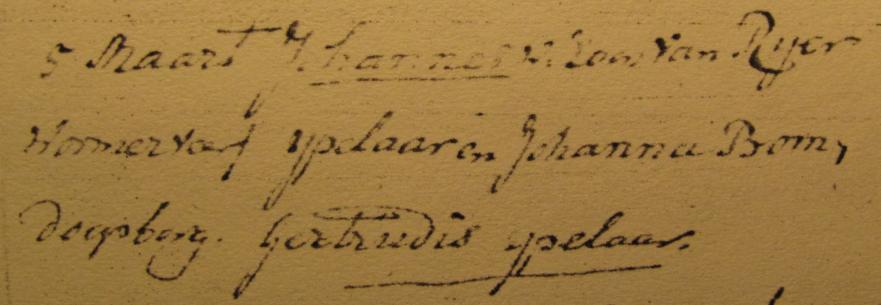 5 Maart Johannes N. Zoon van Ryer
Wormerveer ypelaar en Johanna Bom,
doopborg. Gertrudis ypelaar.